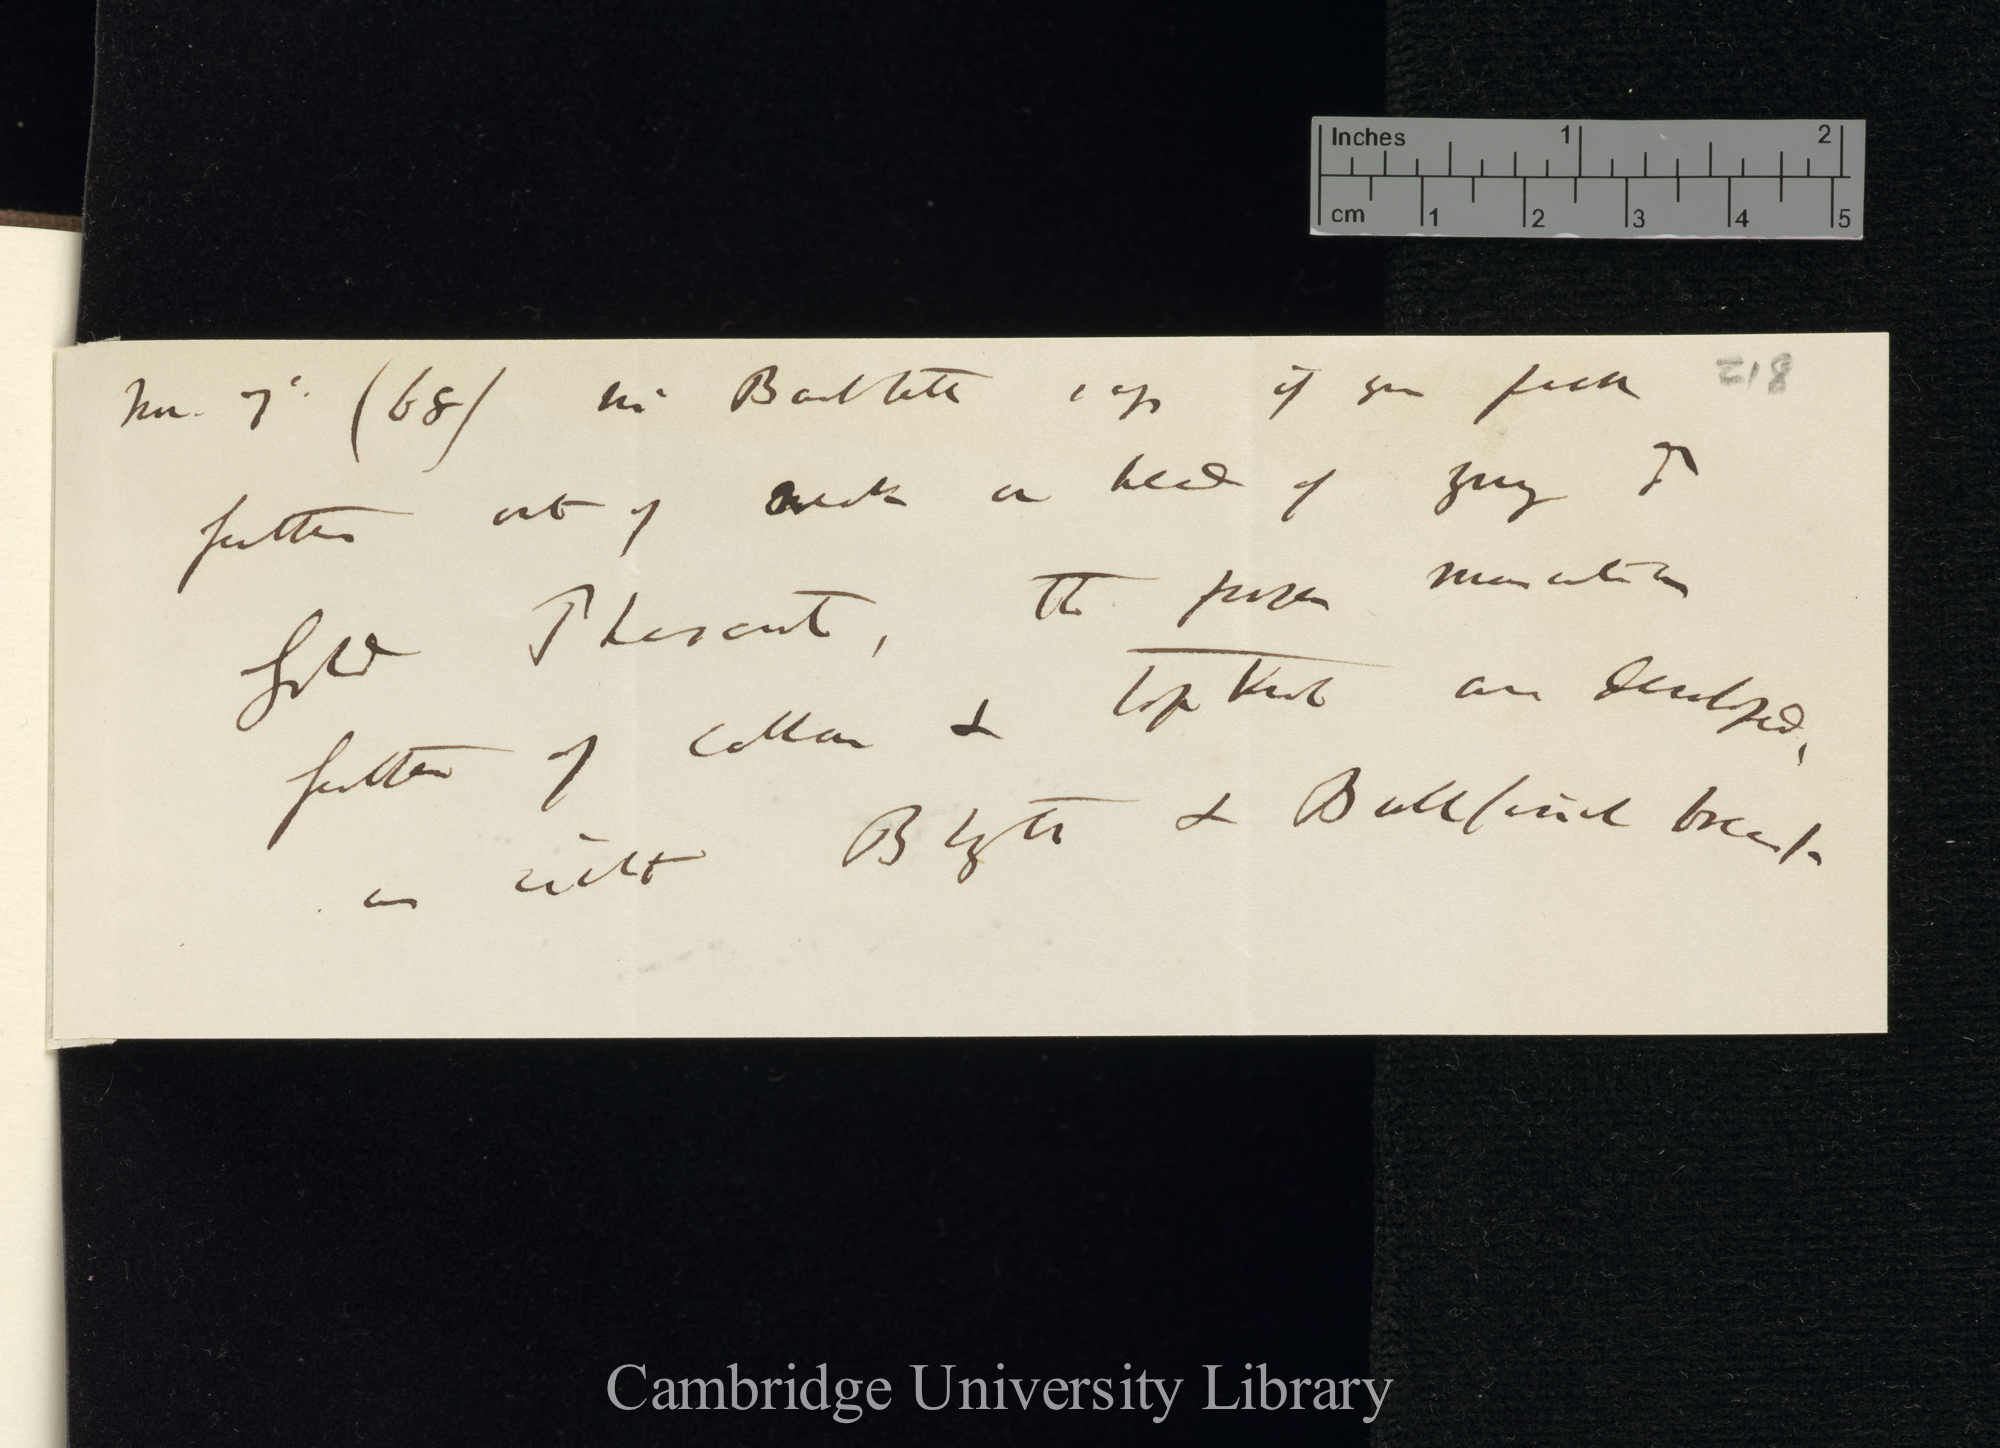 218
Nov. 7th. (68) Mr Bartlett says if you pluck
feathers out of neck or head of young
Gold Pheasant, the proper masculine
feathers of collar & top knot are developed,
as with Blyth & Bullfinch breasts
Inches 1 2
cm 1 2 3 4 5
Cambridge University Library